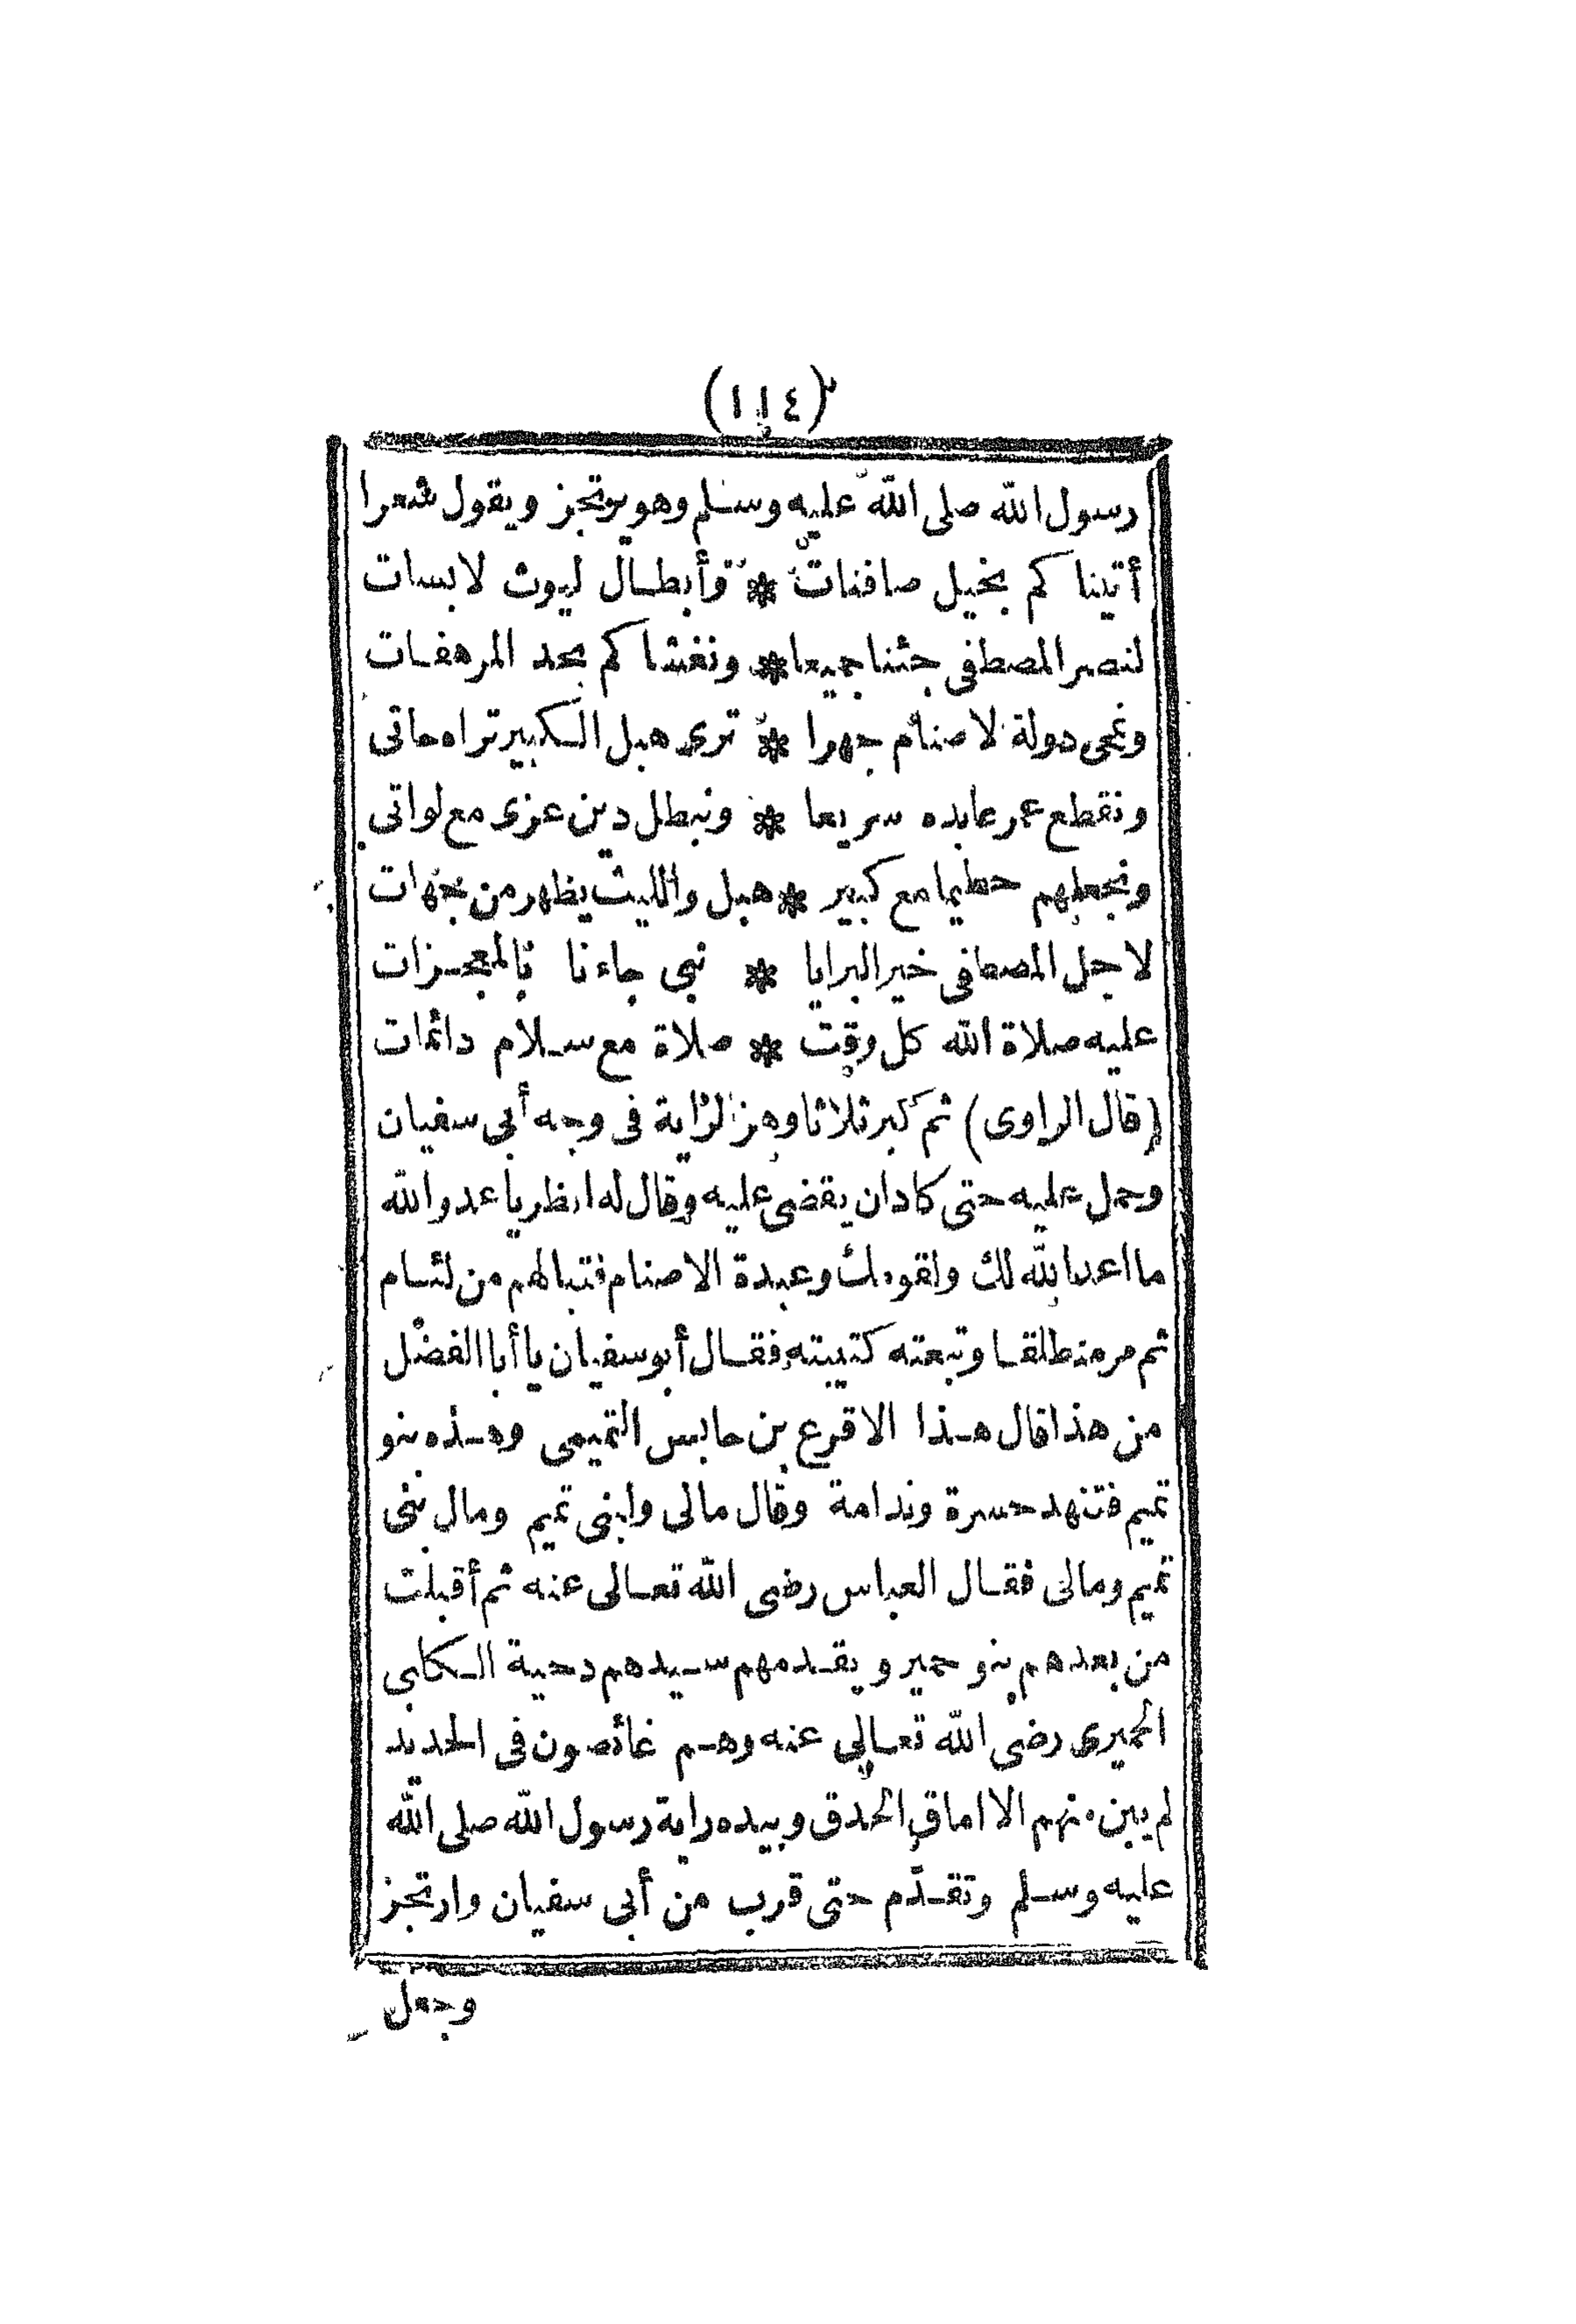 (١١٤)
رسول الله صلى الله عليه وسلم وهو يرتجز ويقول شعرا
أتيناكم بخيل صافنات * وأبطال ليوث لابسات
لنصر المصطفى جئنا جميعا * ونغشاكم بحد المرهفات
ونمحى دولة لاصنام جهرا * ترى هبل الكبير تراه حاتى
ونقطع عمر عابده سريعا * ونبطل دين عزى مع لواتى
ونجعلهم حطيما مع كبير * هبل والليث يظهر من جهات
لاجل المصطفى خير البرايا * نبى جاءنا بالمعجزات
عليه صلاة الله كل وقت * صلاة مع سلام دائمات
(قال الراوى) ثم كبر ثلاثا وهز الراية فى وجه أبى سفيان
وحمل عليه حتى كادان يقضى عليه وقال له انظر يا عدو الله
ما اعد الله لك ولقومك وعبدة الاصنام فتبالهم من لئام
ثم مر منطلقا وتبعته كتيبته فقال أبو سفيان يا أبا الفضل
من هذا قال هذا الاقرع بن حابس التميمى وهذه بنو
تميم فتنهد حسرة وندامة وقال مالى ولبنى تميم ومال بنى
تميم ومالى فقال العباس رضى الله تعالى عنه ثم أقبلت
من بعدهم بنو حمير ويقدمهم سيدهم دحية الكلبى
الحميرى رضى الله تعالى عنه وهم غائصون فى الحديد
لم يبن منهم الا اماق الحدق وبيده راية رسول الله صلى الله
عليه وسلم وتقدّم حتى قرب من أبى سفيان وارتجز
وجعل